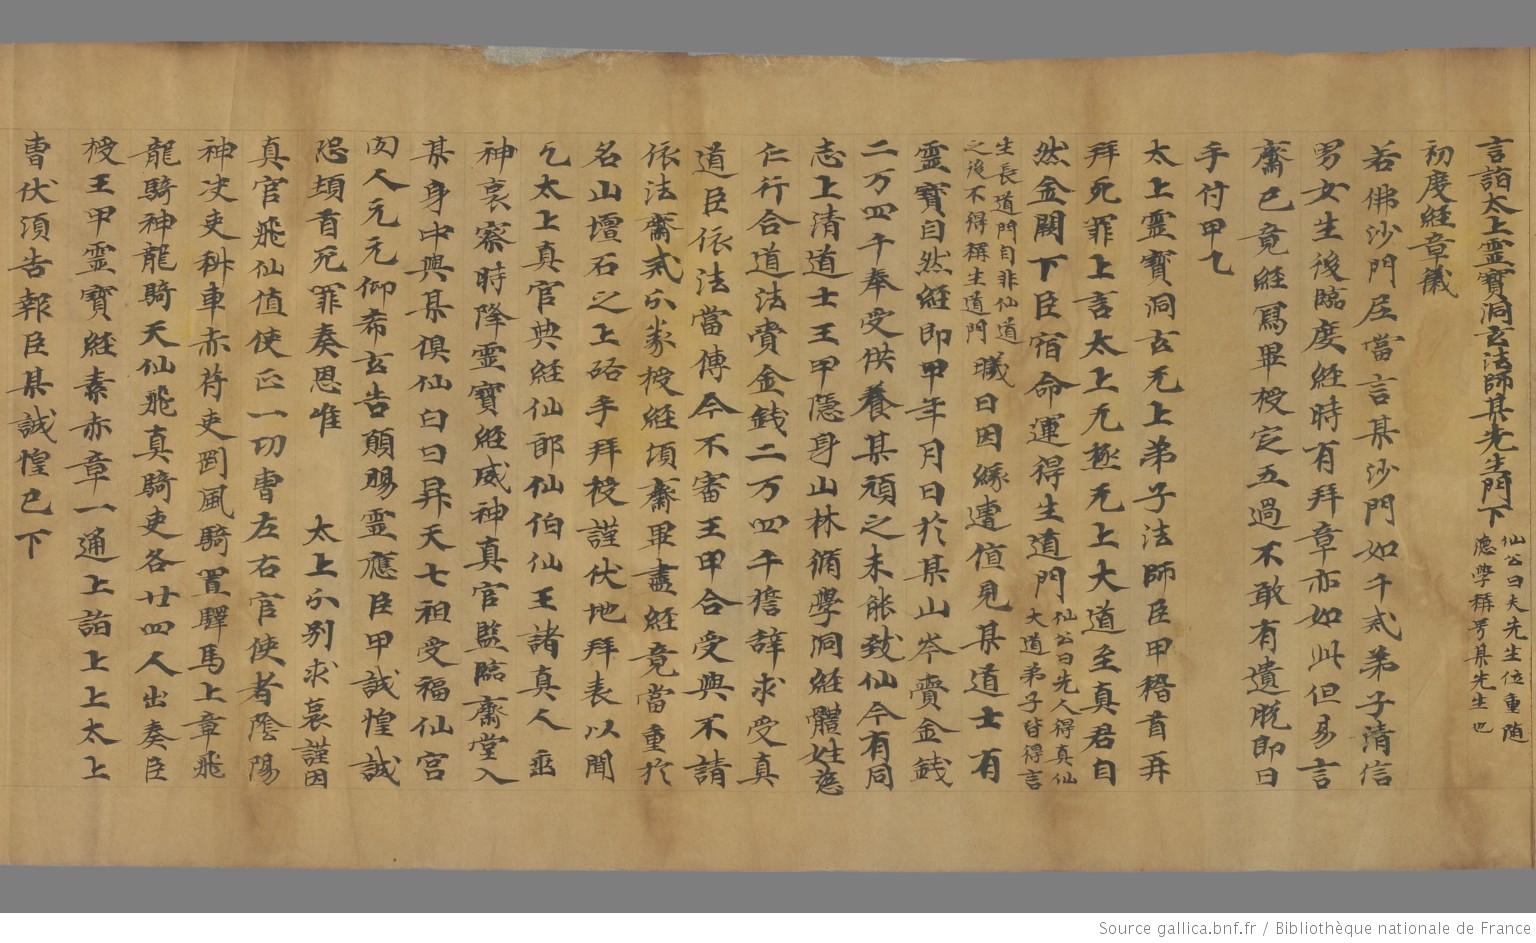 言詣太上靈寶洞玄法師某先生門下仙公曰夫先生位重隨德學稱号某先生也
初度經章儀
若佛沙門层當言某沙門如千貳弟子清信
男女生後臨度經時有拜章亦如此但易言
齋已竟經寫畢授定五過不敢有遺脫即日
手付甲乙
太上靈寶洞玄无上弟子法師臣甲稽首再
拜死罪上言太上无極无上大道至真君自
然金闕下臣宿命運得生道門仙公曰先人得真仙大道弟子皆得言
生長道門自非仙道之後不得稱生道門曦曰因緣遭值見某道士有
靈寶自然經即甲年月日於某山岑賫金錢
二万四千奉受供養某頑之未能致仙今有同
志上清道士王甲隱身山林脩學洞經體姓慈
仁行合道法賫金錢二万四千擔辭求受真
道臣依法當傳今不審王甲合受與不請
依法齋貳六象授經頃齋畢盡經竟當重於
名山壇石之上啟手拜授謹伏地拜表以聞
乞太上真官典經仙郎仙伯仙王諸真人垂
神哀察時降靈寶經威神真官監臨齋堂入
某身中與某俱仙白日昇天七祖受福仙宮
因人元元仰希玄告願賜靈應臣甲誠惶誠
恐頓首死罪奏恩惟 太上分別求哀謹因
真官飛仙值使正一功曹左右官使者陰陽
神决吏科車赤苻吏罡風騎置驛馬上章飛
龍騎神龍騎天仙飛真騎吏各廿四人出奏臣
授王甲靈寶經素赤章一通上詣上上太上
曹伏須告報臣某誠惶已下
Source gallica.bnf.fr / Bibliothèque nationale de France